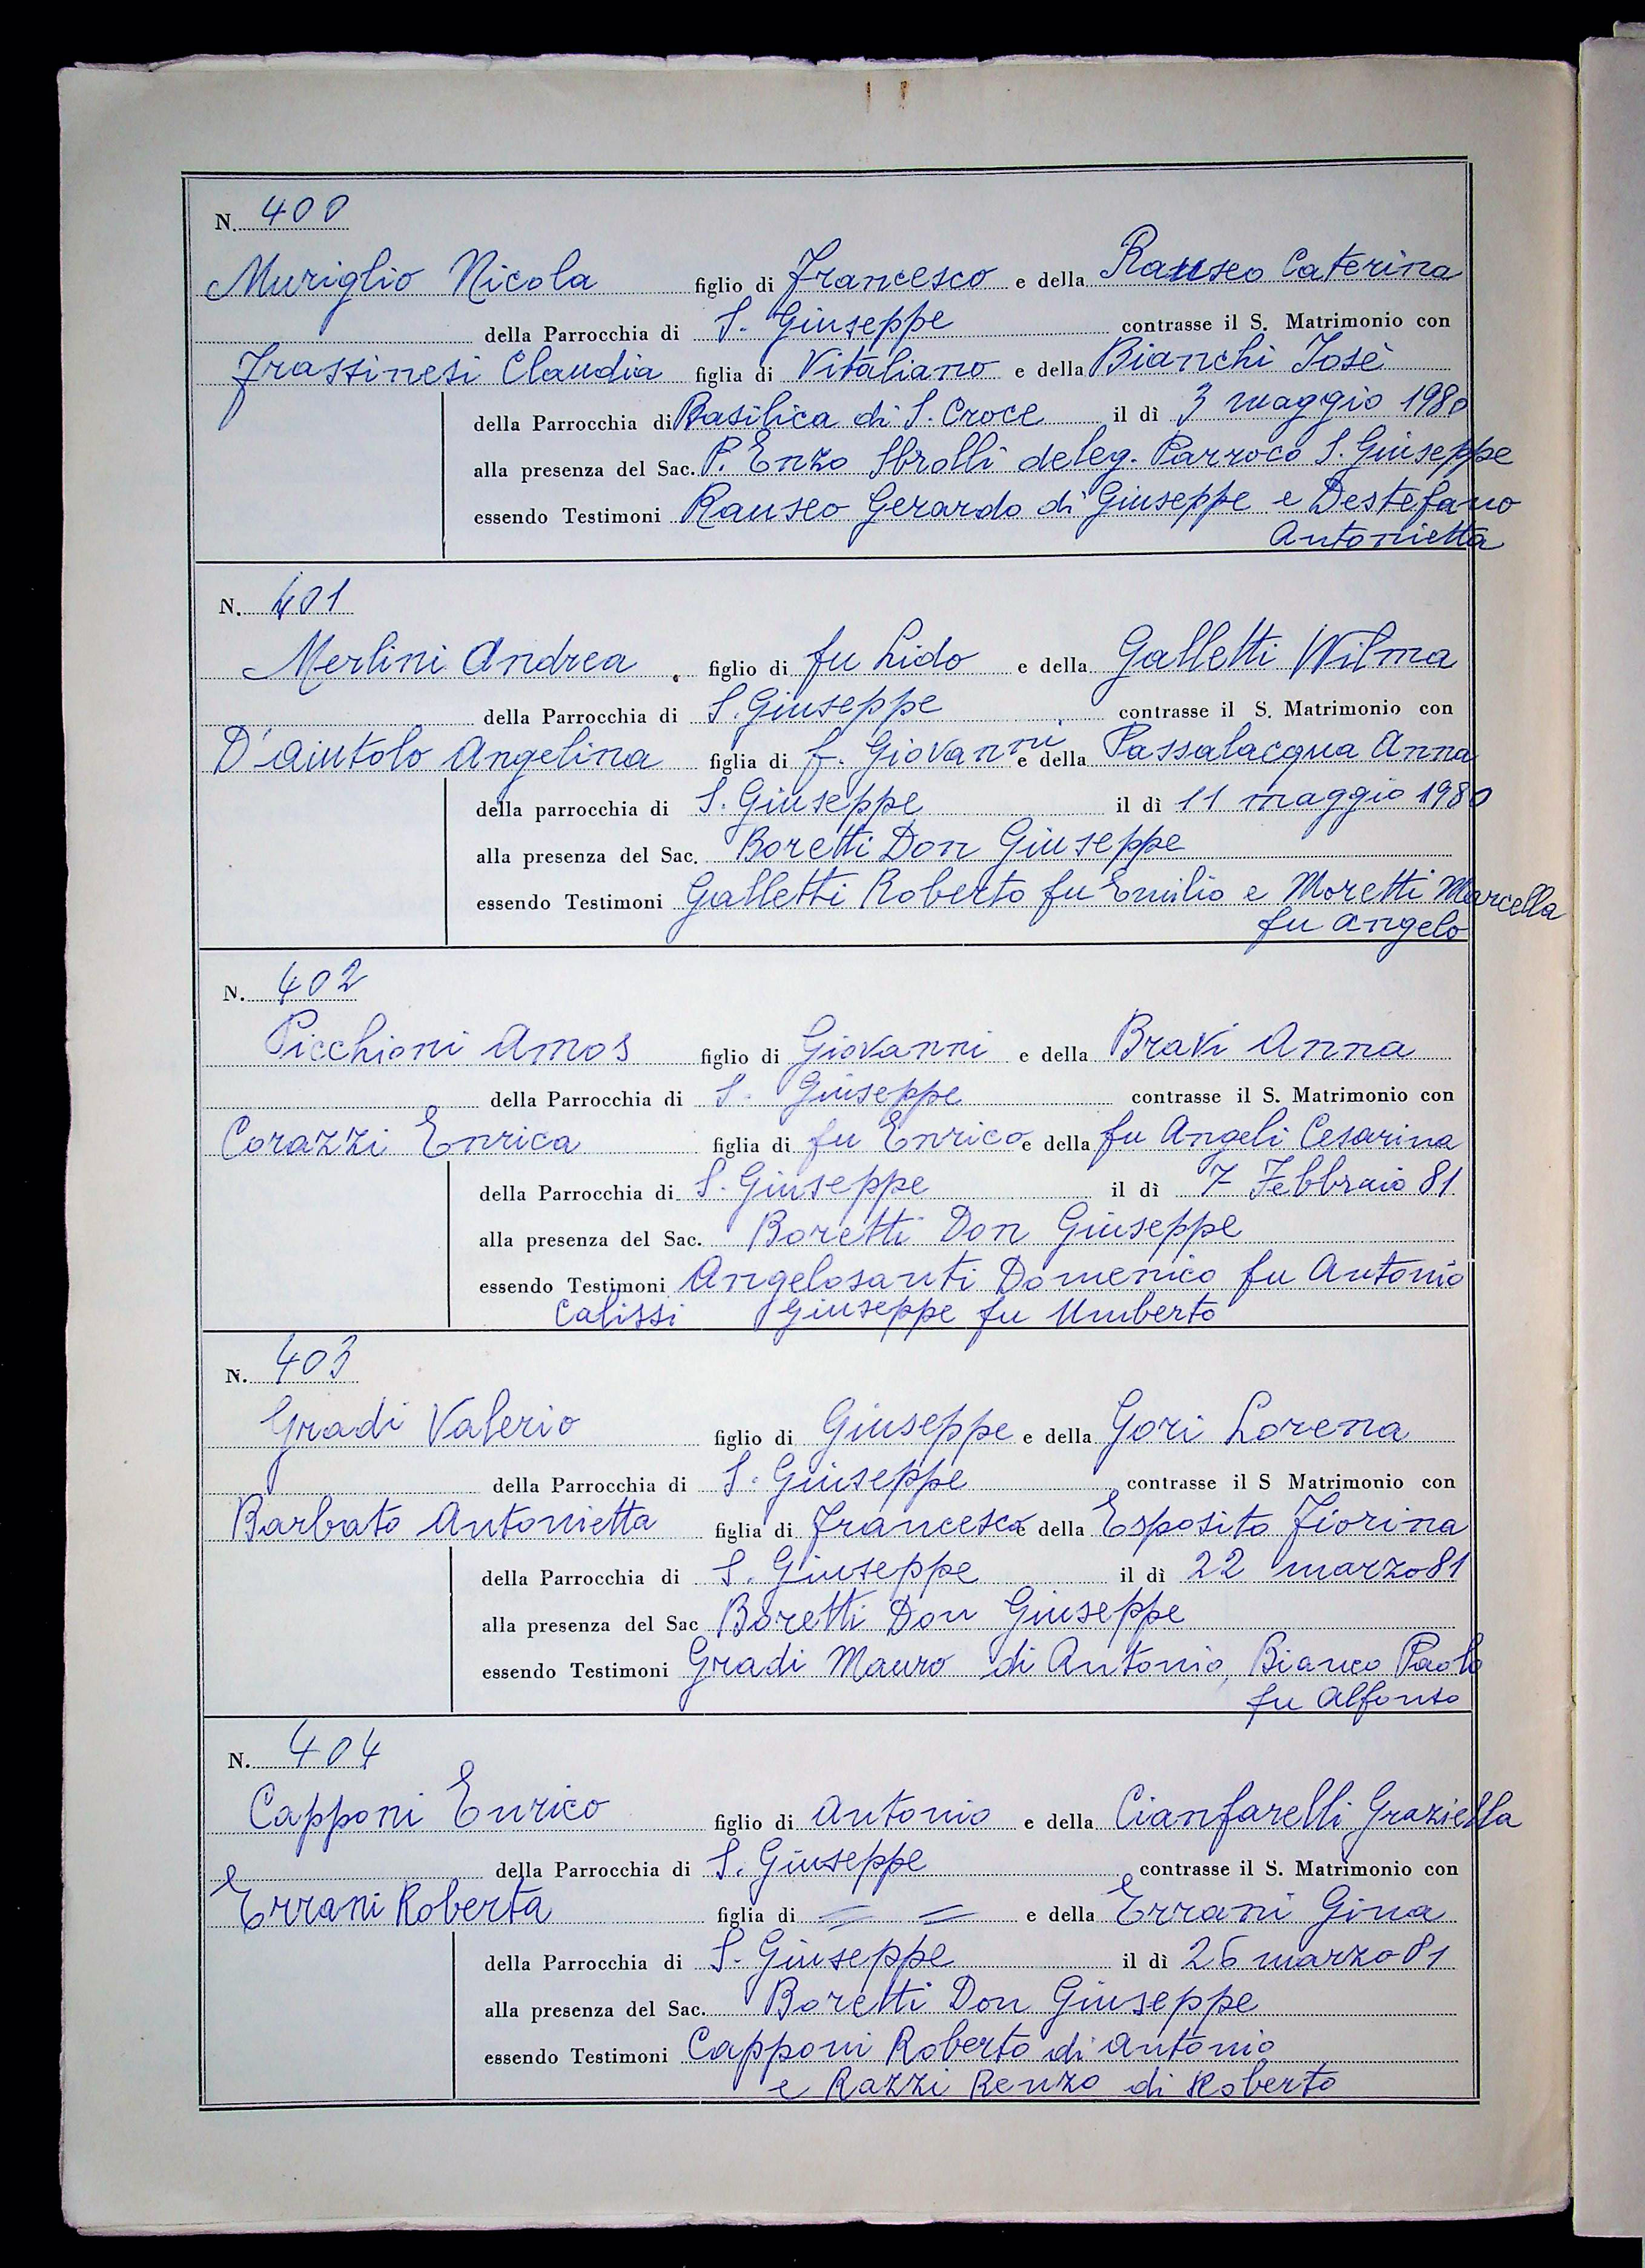 N. 400
Muriglio Nicola figlio di Francesco e della Rauseo Caterina
della Parrocchia di S. Giuseppe contrasse il S. Matrimonio con
Frassinesi Claudia figlia di Vitaliano e della Bianchi Josè
della Parrocchia di Basilica di S. Croce il dì 3 maggio 1980
alla presenza del Sac. P. Enzo Sbrolli deleg. Parroco S. Giuseppe
essendo Testimoni Rauseo Gerardo di Giuseppe e Destefano
Antonietta
N. 401
Merlini Andrea figlio di fu Lido e della Galletti Wilma
della Parrocchia di S. Giuseppe contrasse il S. Matrimonio con
D'aiutolo Angelina figlia di f. Giovanni e della Passalacqua Anna
della parrocchia di S. Giuseppe il dì 11 maggio 1980
alla presenza del Sac. Boretti Don Giuseppe
essendo Testimoni Galletti Roberto fu Emilio e Moretti Marcella
fu Angelo
N. 402
Picchioni Amos figlio di Giovanni e della Bravi Anna
della Parrocchia di S. Giuseppe contrasse il S. Matrimonio con
Corazzi Enrica figlia di fu Enrico e della fu Angeli Cesarina
della Parrocchia di S. Giuseppe il dì 7 Febbraio 81
alla presenza del Sac. Boretti Don Giuseppe
essendo Testimoni Angelosanti Domenico fu Antonio
Calissi Giuseppe fu Umberto
N. 403
Gradi Valerio figlio di Giuseppe e della Gori Lorena
della Parrocchia di S. Giuseppe contrasse il S Matrimonio con
Barbato Antonietta figlia di Francesco e della Esposito Fiorina
della Parrocchia di S. Giuseppe il dì 22 marzo 81
alla presenza del Sac Boretti Don Giuseppe
essendo Testimoni Gradi Mauro di Antonio, Bianco Paolo
fu Alfonso
N. 404
Capponi Enrico figlio di Antonio e della Cianfarelli Graziella
della Parrocchia di S. Giuseppe contrasse il S. Matrimonio con
Errani Roberta figlia di = = e della Errani Gina
della Parrocchia di S. Giuseppe il dì 26 marzo 81
alla presenza del Sac. Boretti Don Giuseppe
essendo Testimoni Capponi Roberto di Antonio
e Razzi Renzo di Roberto